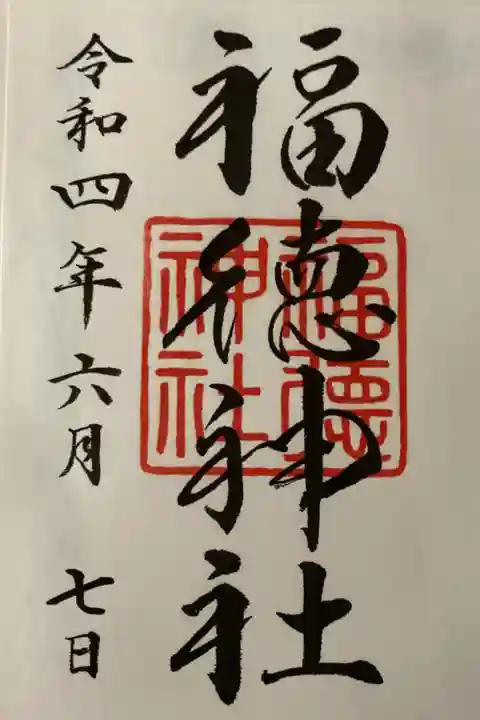 福徳神社
福徳神社
令和四年六月 七日